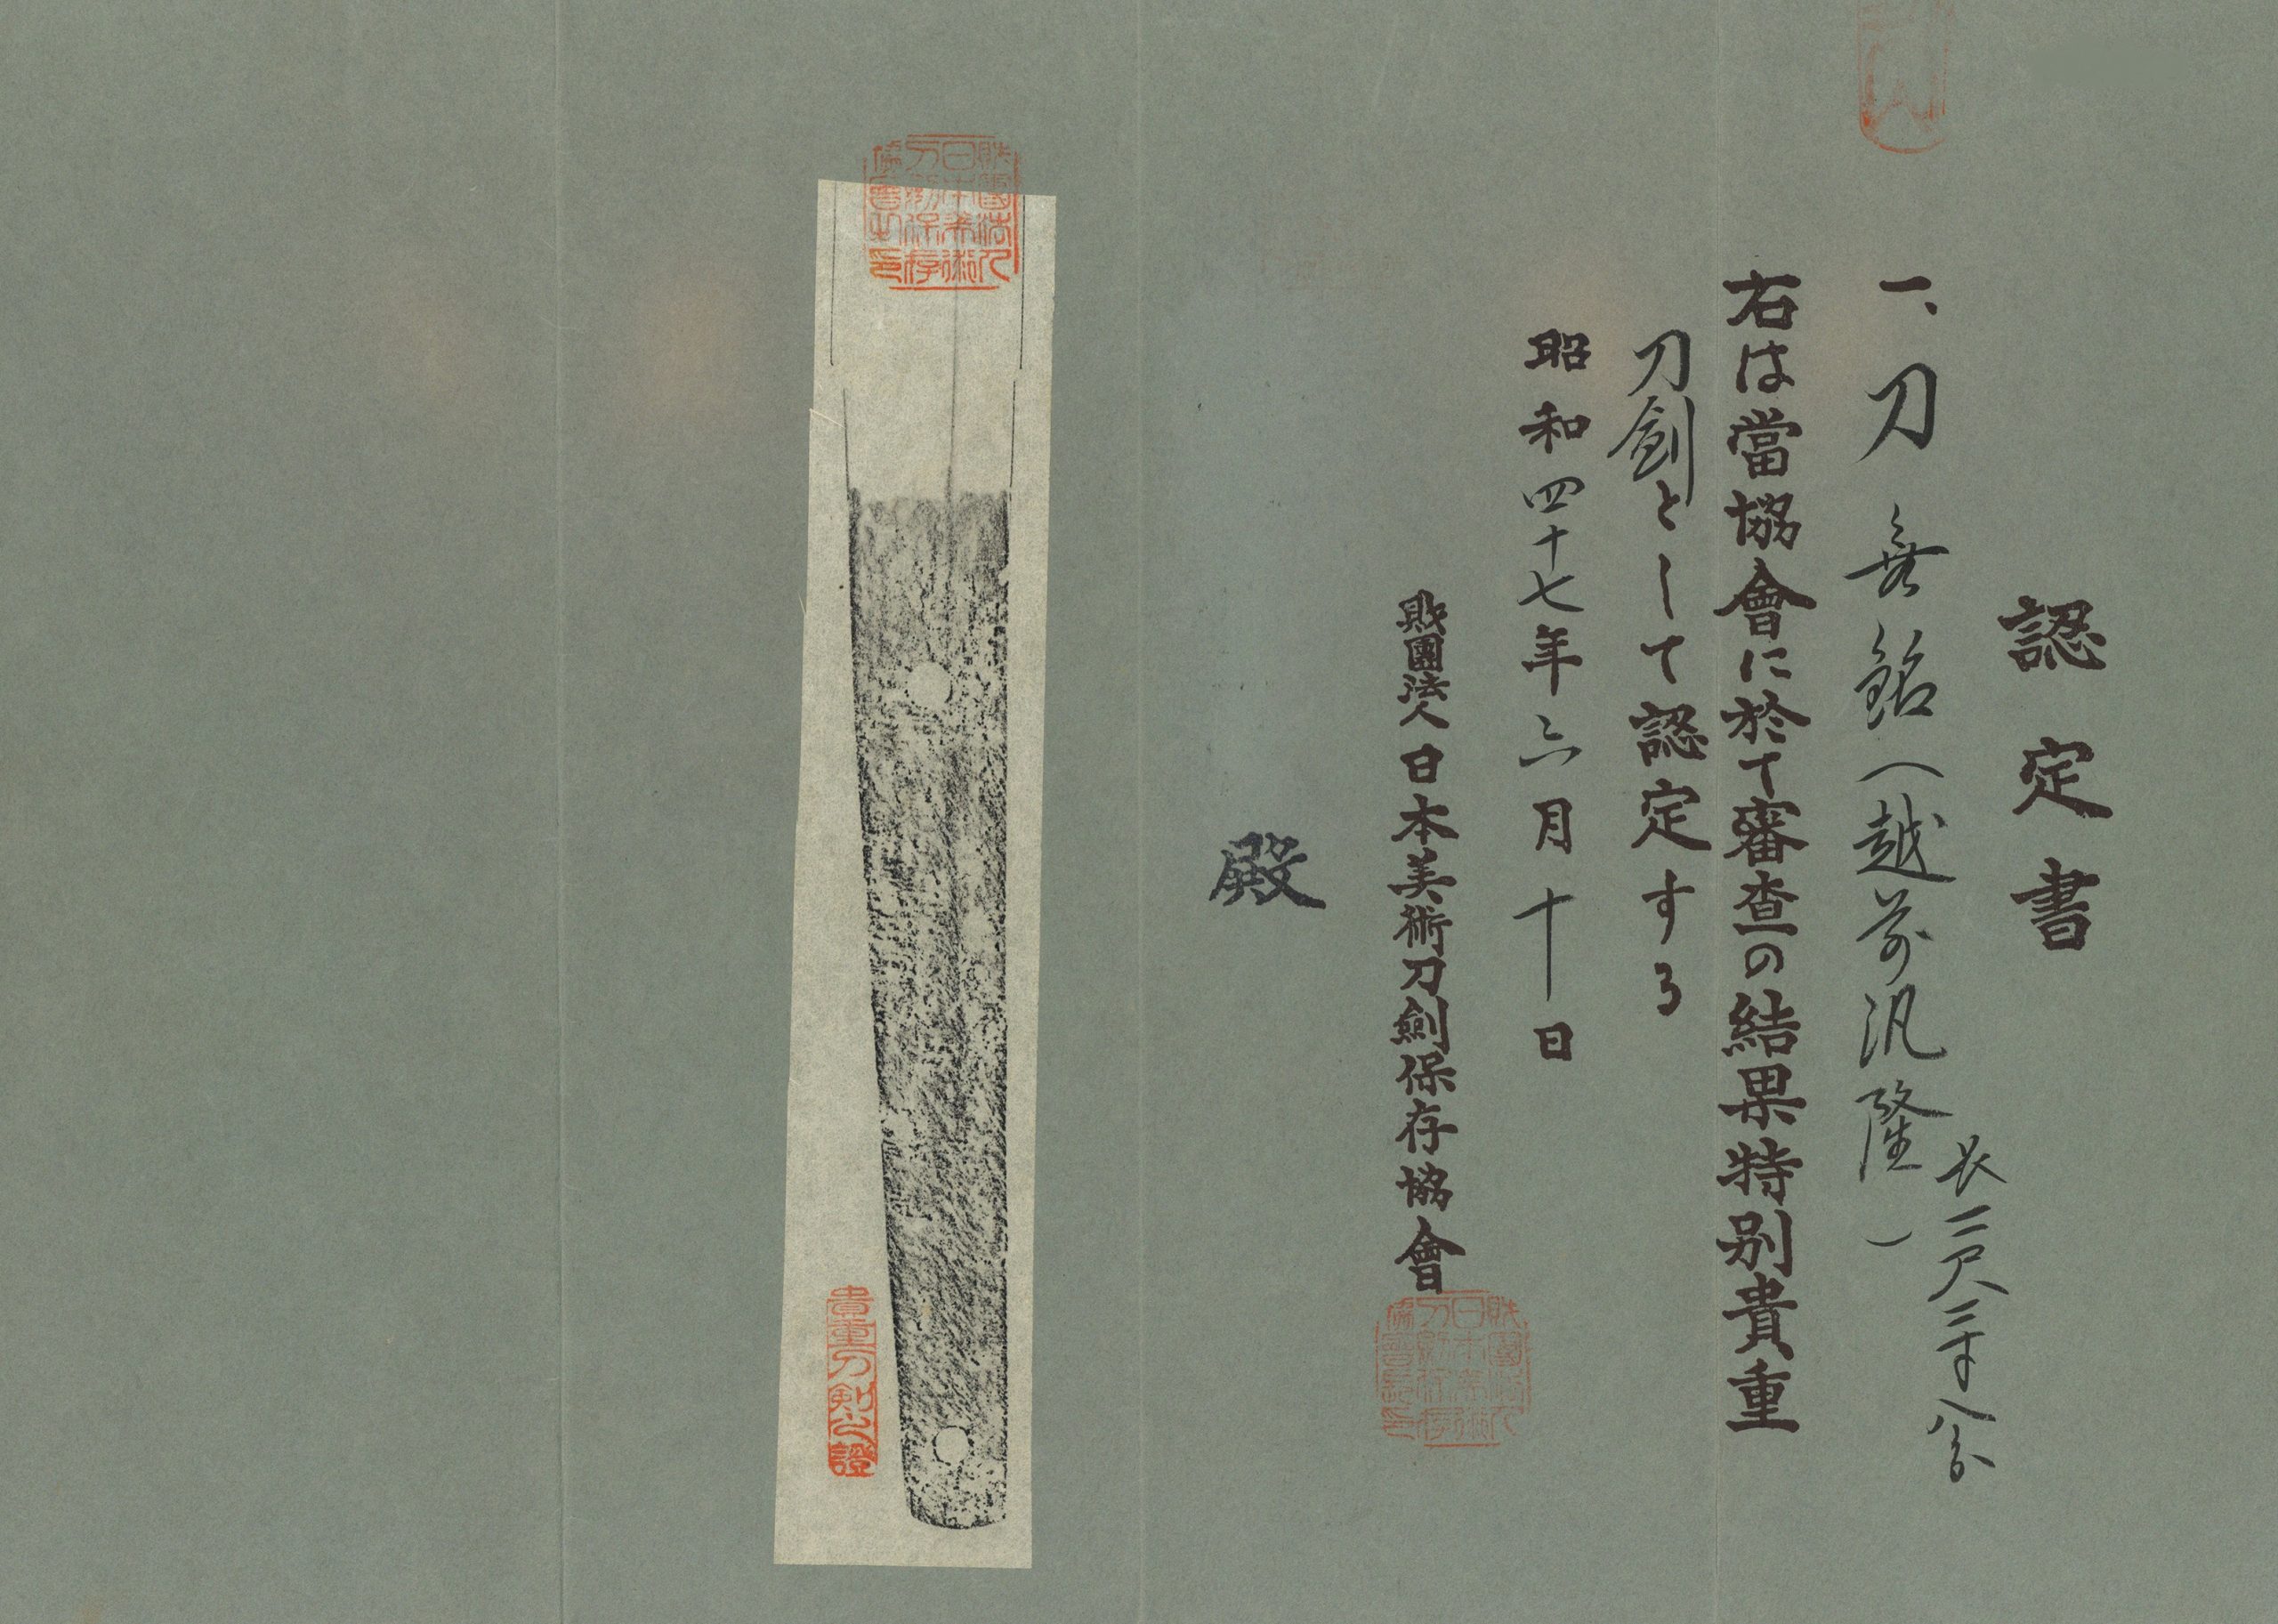 認定書
一、刀 無銘(越前汎隆)
長二尺三寸八分
右は當協會に於て審査の結果特別貴重
刀劍として認定する
昭和四十七年六月十日
財團法人日本美術刀劍保存協會
財團法人日本美術刀劍保存協會長印
殿
財團法人日本美術刀劍保存協會之印
貴重刀剣之證